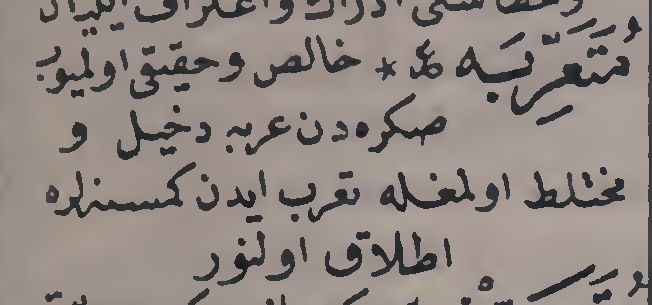 مُتَعَرِّبَه * خالص وحقيقى اولميوب
صكره‌دن عربه دخيل و
مختلط اولمغله تعرب ايدن كمسنه‌لره
اطلاق اولنور